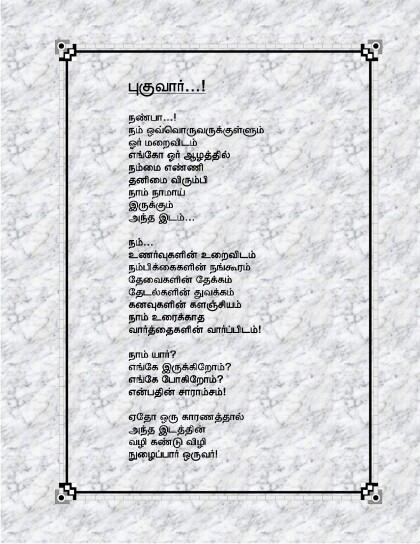 புகுவார்...!
நண்பா...!
நம் ஒவ்வொருவருக்குள்ளும்
ஓர் மறைவிடம்
எங்கோ ஓர் ஆழத்தில்
நம்மை எண்ணி
தனிமை விரும்பி
நாம் நாமாய்
இருக்கும்
அந்த இடம்...
நம்...
உணர்வுகளின் உறைவிடம்
நம்பிக்கைகளின் நங்கூரம்
தேவைகளின் தேக்கம்
தேடல்களின் துவக்கம்
கனவுகளின் களஞ்சியம்
நாம் உரைக்காத
வார்த்தைகளின் வார்ப்பிடம்!
நாம் யார்?
எங்கே இருக்கிறோம்?
எங்கே போகிறோம்?
என்பதின் சாராம்சம்!
ஏதோ ஒரு காரணத்தால்
அந்த இடத்தின்
வழி கண்டு விழி
நுழைப்பார் ஒருவர்!